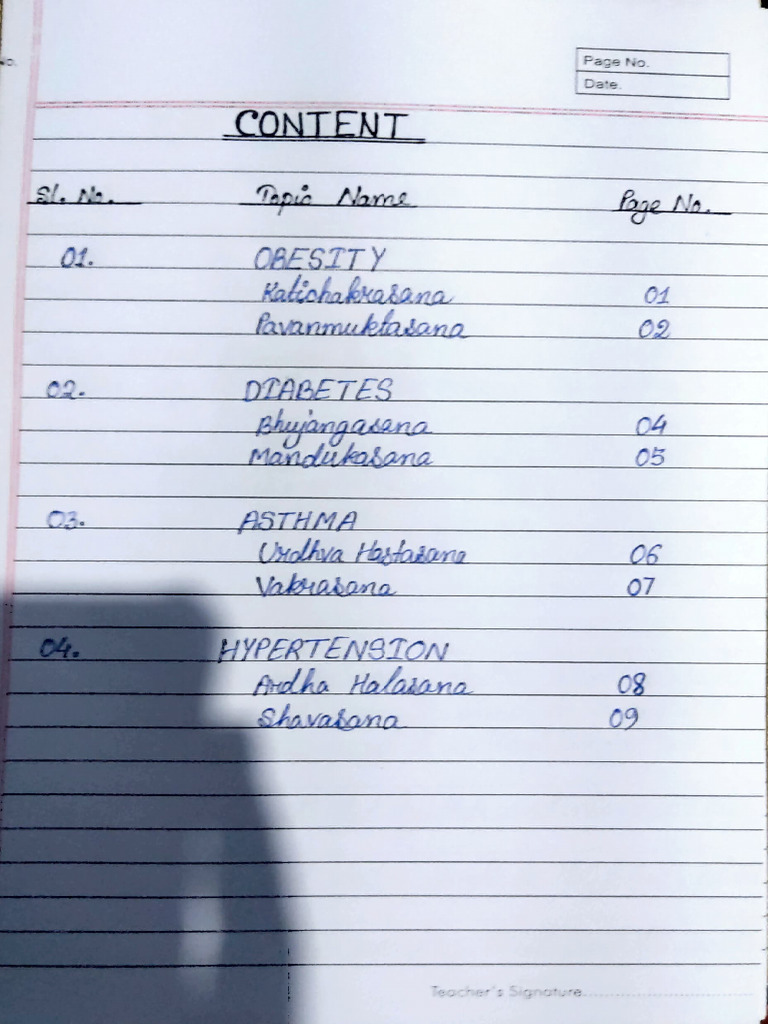 No.
Page No.
Date.
CONTENT
Sl. No. Topic Name Page No.
01. OBESITY
Katichakrasana 01
Pavanmuktasana 02
02. DIABETES
Bhujangasana 04
Mandukasana 05
03. ASTHMA
Urdhva Hastasana 06
Vakrasana 07
04. HYPERTENSION
Ardha Halasana 08
Shavasana 09
Teacher's Signature